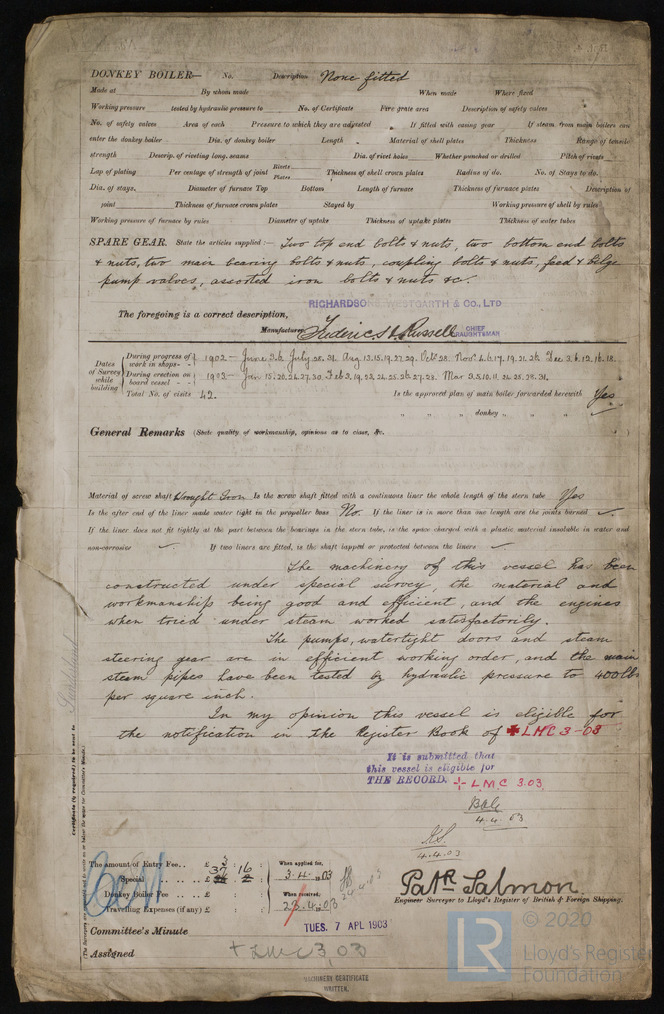 DONKEY BOILER— No. Description None fitted
Made at By whom made When made Where fixed
Working pressure tested by hydraulic pressure to No. of Certificate Fire grate area Description of safety valves
No. of safety valves Area of each Pressure to which they are adjusted If fitted with easing gear If steam from main boilers can
enter the donkey boiler Dia. of donkey boiler Length Material of shell plates Thickness Range of tensile
strength Descrip. of riveting long. seams Dia. of rivet holes Whether punched or drilled Pitch of rivets
Lap of plating Per centage of strength of joint Rivets Plates Thickness of shell crown plates Radius of do. No. of Stays to do.
Dia. of stays. Diameter of furnace Top Bottom Length of furnace Thickness of furnace plates Description of
joint Thickness of furnace crown plates Stayed by Working pressure of shell by rules
Working pressure of furnace by rules Diameter of uptake Thickness of uptake plates Thickness of water tubes
SPARE GEAR. State the articles supplied:— Two top end bolts & nuts, two bottom end bolts
& nuts, two main bearing bolts & nuts, coupling bolts & nuts, feed & bilge
pump valves, assorted iron bolts & nuts &c.
RICHARDSONS WESTGARTH & CO., LTD
The foregoing is a correct description,
Manufacturer. Frederic S. Russell CHIEF DRAUGHTSMAN
Dates of Survey while building
During progress of work in shops-- 1902— June 26 July 25.31 Aug 13.15.19.27.29. Oct 28. Nov 4.6.17.19.21.26 Dec 3.6.12.16.18.
During erection on board vessel-- 1903— Jan 15.20.24.27.30 Feb 3.19.22.24.25.26.27.28 Mar 3.5.10.11.24.25.28.31.
Total No. of visits 42. Is the approved plan of main boiler forwarded herewith Yes
" " " donkey " " "
General Remarks (State quality of workmanship, opinions as to class, &c. )
Material of screw shaft Wrought Iron Is the screw shaft fitted with a continuous liner the whole length of the stern tube Yes
Is the after end of the liner made water tight in the propeller boss No. If the liner is in more than one length are the joints burned ✓
If the liner does not fit tightly at the part between the bearings in the stern tube, is the space charged with a plastic material insoluble in water and
non-corrosive ✓ If two liners are fitted, is the shaft lapped or protected between the liners ✓
The machinery of this vessel has been
constructed under special survey, the material and
workmanship being good and efficient, and the engines
when tried under steam worked satisfactorily.
The pumps, watertight doors and steam
steering gear are in efficient working order, and the main
steam pipes have been tested by hydraulic pressure to 400 lbs
per square inch.
In my opinion this vessel is eligible for
the notification in the Register Book of ✠LMC 3-03
It is submitted that
this vessel is eligible for
THE RECORD. + LMC 3.03.
4.4.03
4.4.03
Certificate (if required) to be sent to Sunderland
The amount of Entry Fee.. £ 3 : : When applied for,
Special .. .. £ 37 : 16 : 3.4.03
Donkey Boiler Fee .. £ : : When received,
Travelling Expenses (if any) £ : : 23.4.03
24.4.03
Patk Salmon.
Engineer Surveyor to Lloyd's Register of British & Foreign Shipping.
TUES. 7 APL 1903
Committee's Minute
Assigned + LMC 3,03
MACHINERY CERTIFICATE
WRITTEN.
LR © 2020
Lloyd's Register
Foundation